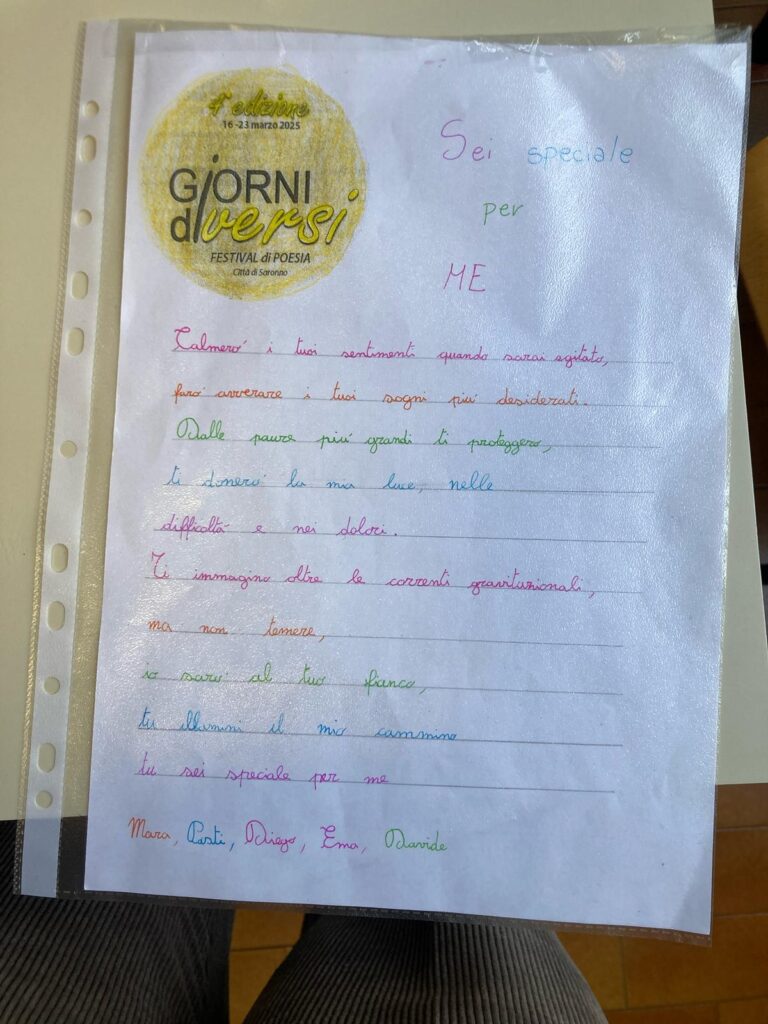 4ª edizione
16-23 marzo 2025
GiORNI
diversi
FESTIVAL di POESIA
Città di Saronno
Sei speciale
per
ME
Calmerò i tuoi sentimenti quando sarai agitato,
farò avverare i tuoi sogni più desiderati.
Dalle paure più grandi ti proteggerò,
ti donerò la mia luce, nelle
difficoltà e nei dolori.
Ti immagino oltre le correnti gravitazionali,
ma non temere,
io sarò al tuo fianco,
tu illumini il mio cammino
tu sei speciale per me
Mara, Diego, Ema, Davide